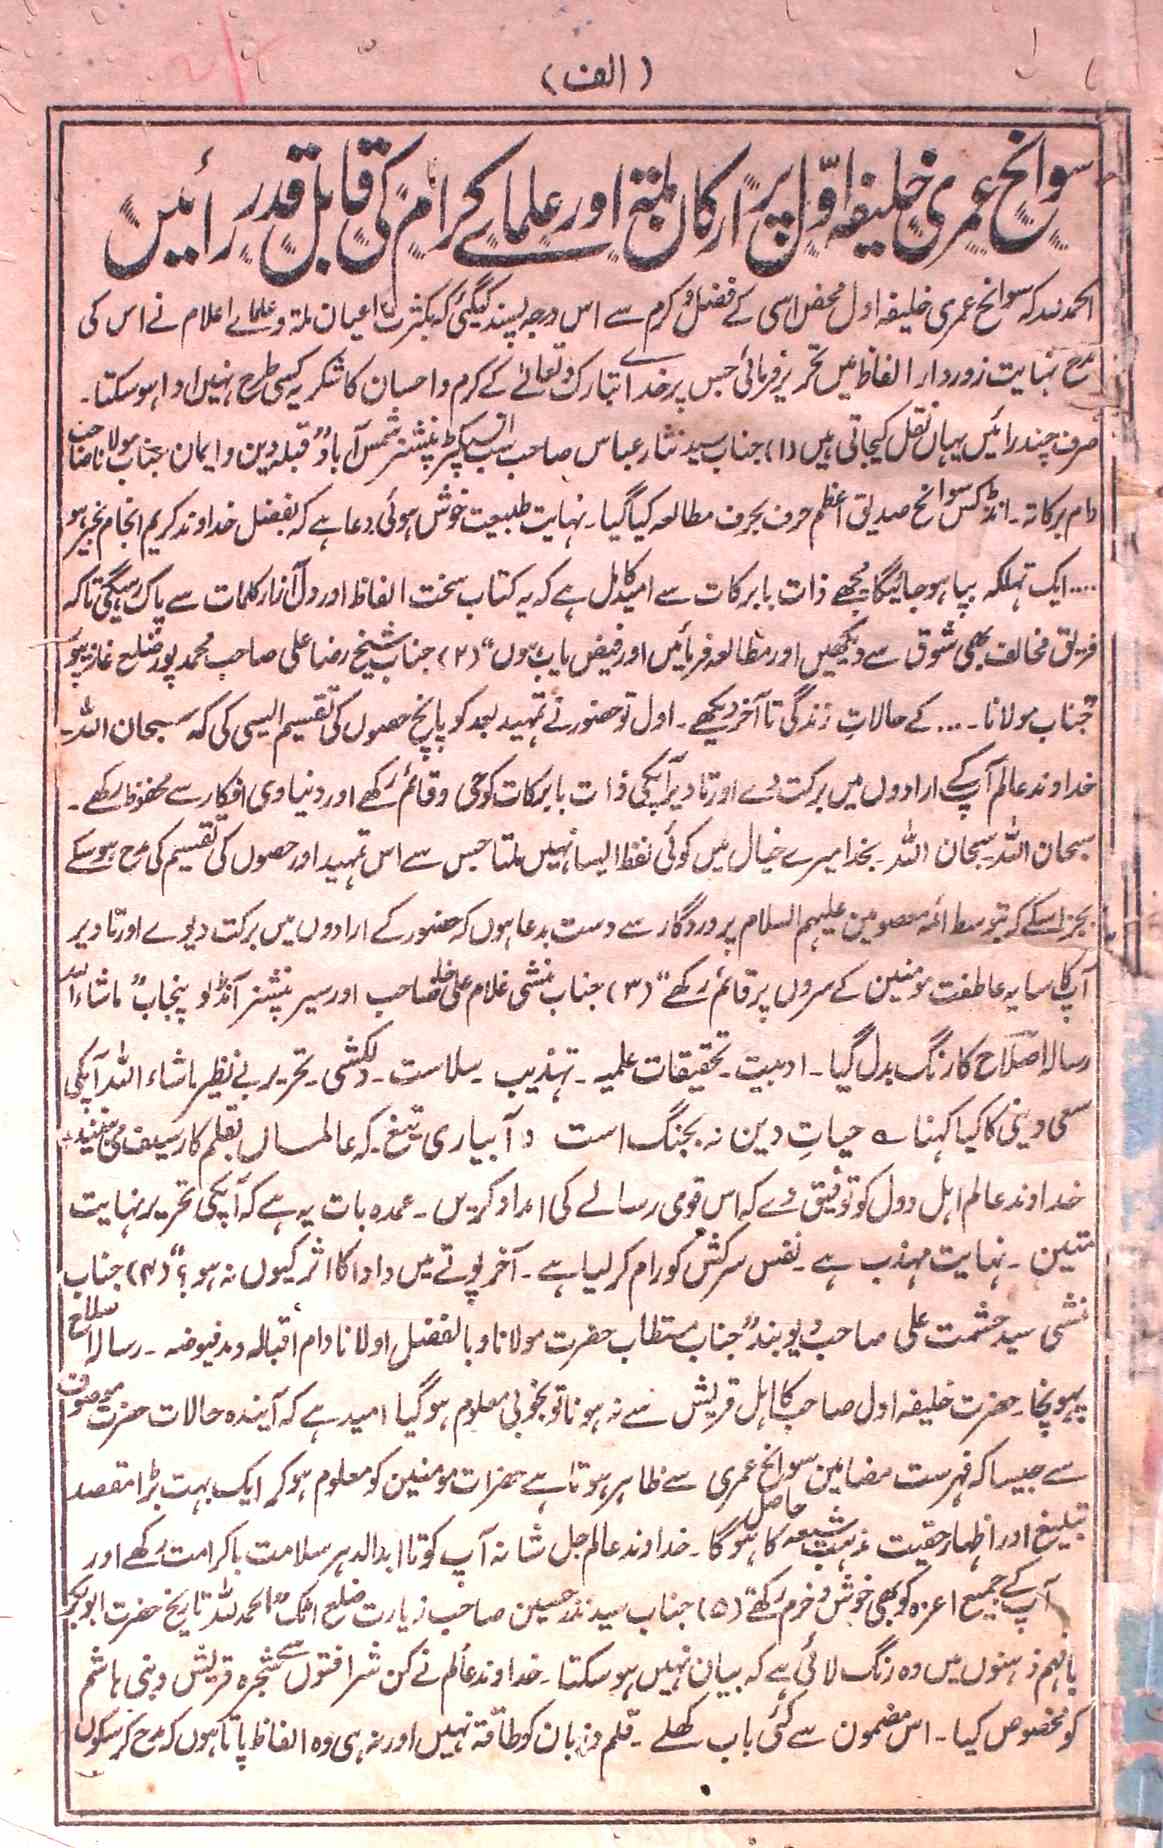 (الف)
سوانح عمری خلیفہ اوّل پر ارکان ملتہ اور علمائے کرام کی قابل قدر رائیں
الحمد للہ کہ سوانح عمری خلیفہ اول محض اسی کے فضل و کرم سے اس درجہ پسند کیگئی کہ بکثرت اعیان ملۃ و علمائے اعلام نے اس کی
مدح نہایت زوردار الفاظ میں تحریر فرمائی جس پر خدائے تبارک و تعالےٰ کے کرم و احسان کا شکریہ کسی طرح نہیں ادا ہو سکتا۔
صرف چند رائیں یہاں نقل کیجاتی ہیں (۱) جناب سید نثار عباس صاحب سب انسپکٹر پنشنر شمس آباد "قبلہ دین و ایمان جناب مولانا صاحب
دام برکاتہ۔ انڈکس سوانح صدیق اعظم حرف بحرف مطالعہ کیا گیا۔ نہایت طبیعت خوش ہوئی دعا ہے کہ بفضل خداوند کریم انجام بخیر ہو
.... ایک تہلکہ بپا ہو جائیگا مجھے ذات بابرکات سے امید کامل ہے کہ یہ کتاب سخت الفاظ اور دل آزار کلمات سے پاک رہیگی تاکہ
فریق مخالف بھی شوق سے دیکھیں اور مطالعہ فرمائیں اور فیض یاب ہوں" (۲) جناب شیخ رضا علی صاحب محمد پور ضلع غازیپور
"جناب مولانا ۔.... کے حالات زندگی تا آخر دیکھے۔ اول تو حضور نے تمہید بعد کو پانچ حصوں کی تقسیم ایسی کی کہ سبحان اللہ۔
خداوند عالم آپ کے ارادوں میں برکت دے اور تا دیر آپکی ذات بابرکات کو حی و قائم رکھے اور دنیاوی افکار سے محفوظ رکھے۔
سبحان اللہ سبحان اللہ۔ بخدا میرے خیال میں کوئی لفظ ایسا نہیں ملتا جس سے اس تمہید اور حصوں کی تقسیم کی مدح ہو سکے
بجز اسکے کہ بتوسط ائمہ معصومین علیہم السلام پروردگار سے دست بدعا ہوں کہ حضور کے ارادوں میں برکت دیوے اور تا دیر
آپ کا سایہ عاطفت مومنین کے سروں پر قائم رکھے" (۳) جناب منشی غلام علی صاحب اورسیر پنشنر پنجاب "ماشاء اللہ
رسالہ اصلاح کا رنگ بدل گیا۔ ادبیت۔ تحقیقات علمیہ۔ تہذیب۔ سلاست۔ دلکشی۔ تحریر بے نظیر ماشاء اللہ آپکی
سعی دینی کا کیا کہنا ؎ حیاتِ دین نہ بجنگ است و آبیاری تیغ ؛ کہ عالماں بقلم کار سیف می کنند ؛
خداوند عالم اہل دول کو توفیق دے کہ اس قومی رسالے کی امداد کریں۔ عمدہ بات یہ ہے کہ آپکی تحریر نہایت
متین۔ نہایت مہذب ہے۔ نفس سرکش کو رام کر لیا ہے۔ آخر پوتے میں دادا کا اثر کیوں نہ ہو؟" (۴) جناب
منشی سید حشمت علی صاحب دیوبند "جناب مستطاب حضرت مولانا و بالفضل اولانا دام اقبالہ و مد فیوضہ۔ رسالہ اصلاح
پہونچا۔ حضرت خلیفہ اول صاحب کا اہل قریش سے نہ ہونا تو بخوبی معلوم ہو گیا امید ہے کہ آیندہ حالات حضرت موصوف
سے جیسا کہ فہرست مضامین سوانح عمری سے ظاہر ہوتا ہے حضرات مومنین کو معلوم ہو کر ایک بہت بڑا مقصد
تبلیغ اور اظہار حقیت مذہب شیعہ کا حاصل ہوگا۔ خداوند عالم جل شانہ آپ کو تا ابد الدہر سلامت باکرامت رکھے اور
آپ کے جمیع اعزہ کو بھی خوش و خرم رکھے (۵) جناب سید نذر حسین صاحب زیارت ضلع اٹک "الحمد للہ تاریخ حضرت ابوبکر
بافہم ذہنوں میں وہ رنگ لائی ہے کہ بیان نہیں ہو سکتا۔ خداوند عالم نے کن شرافتوں سے شجرہ قریش و بنی ہاشم
کو مخصوص کیا۔ اس مضمون سے کئی باب کھلے۔ قلم و زبان کو طاقۃ نہیں اور نہ ہی وہ الفاظ پاتا ہوں کہ مدح کر سکوں